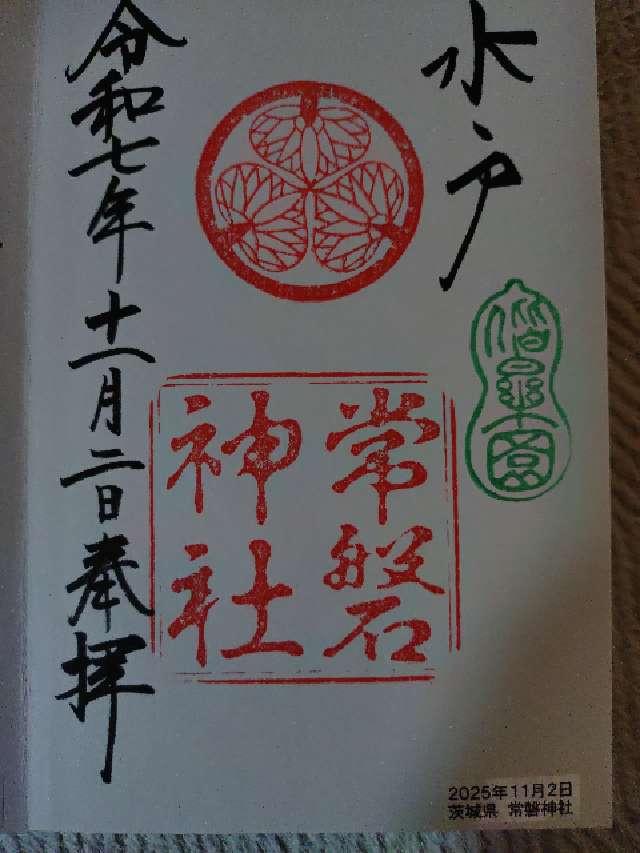 水戸
偕楽園
常磐
神社
令和七年十一月二日奉拝
2025年11月2日
茨城県 常磐神社